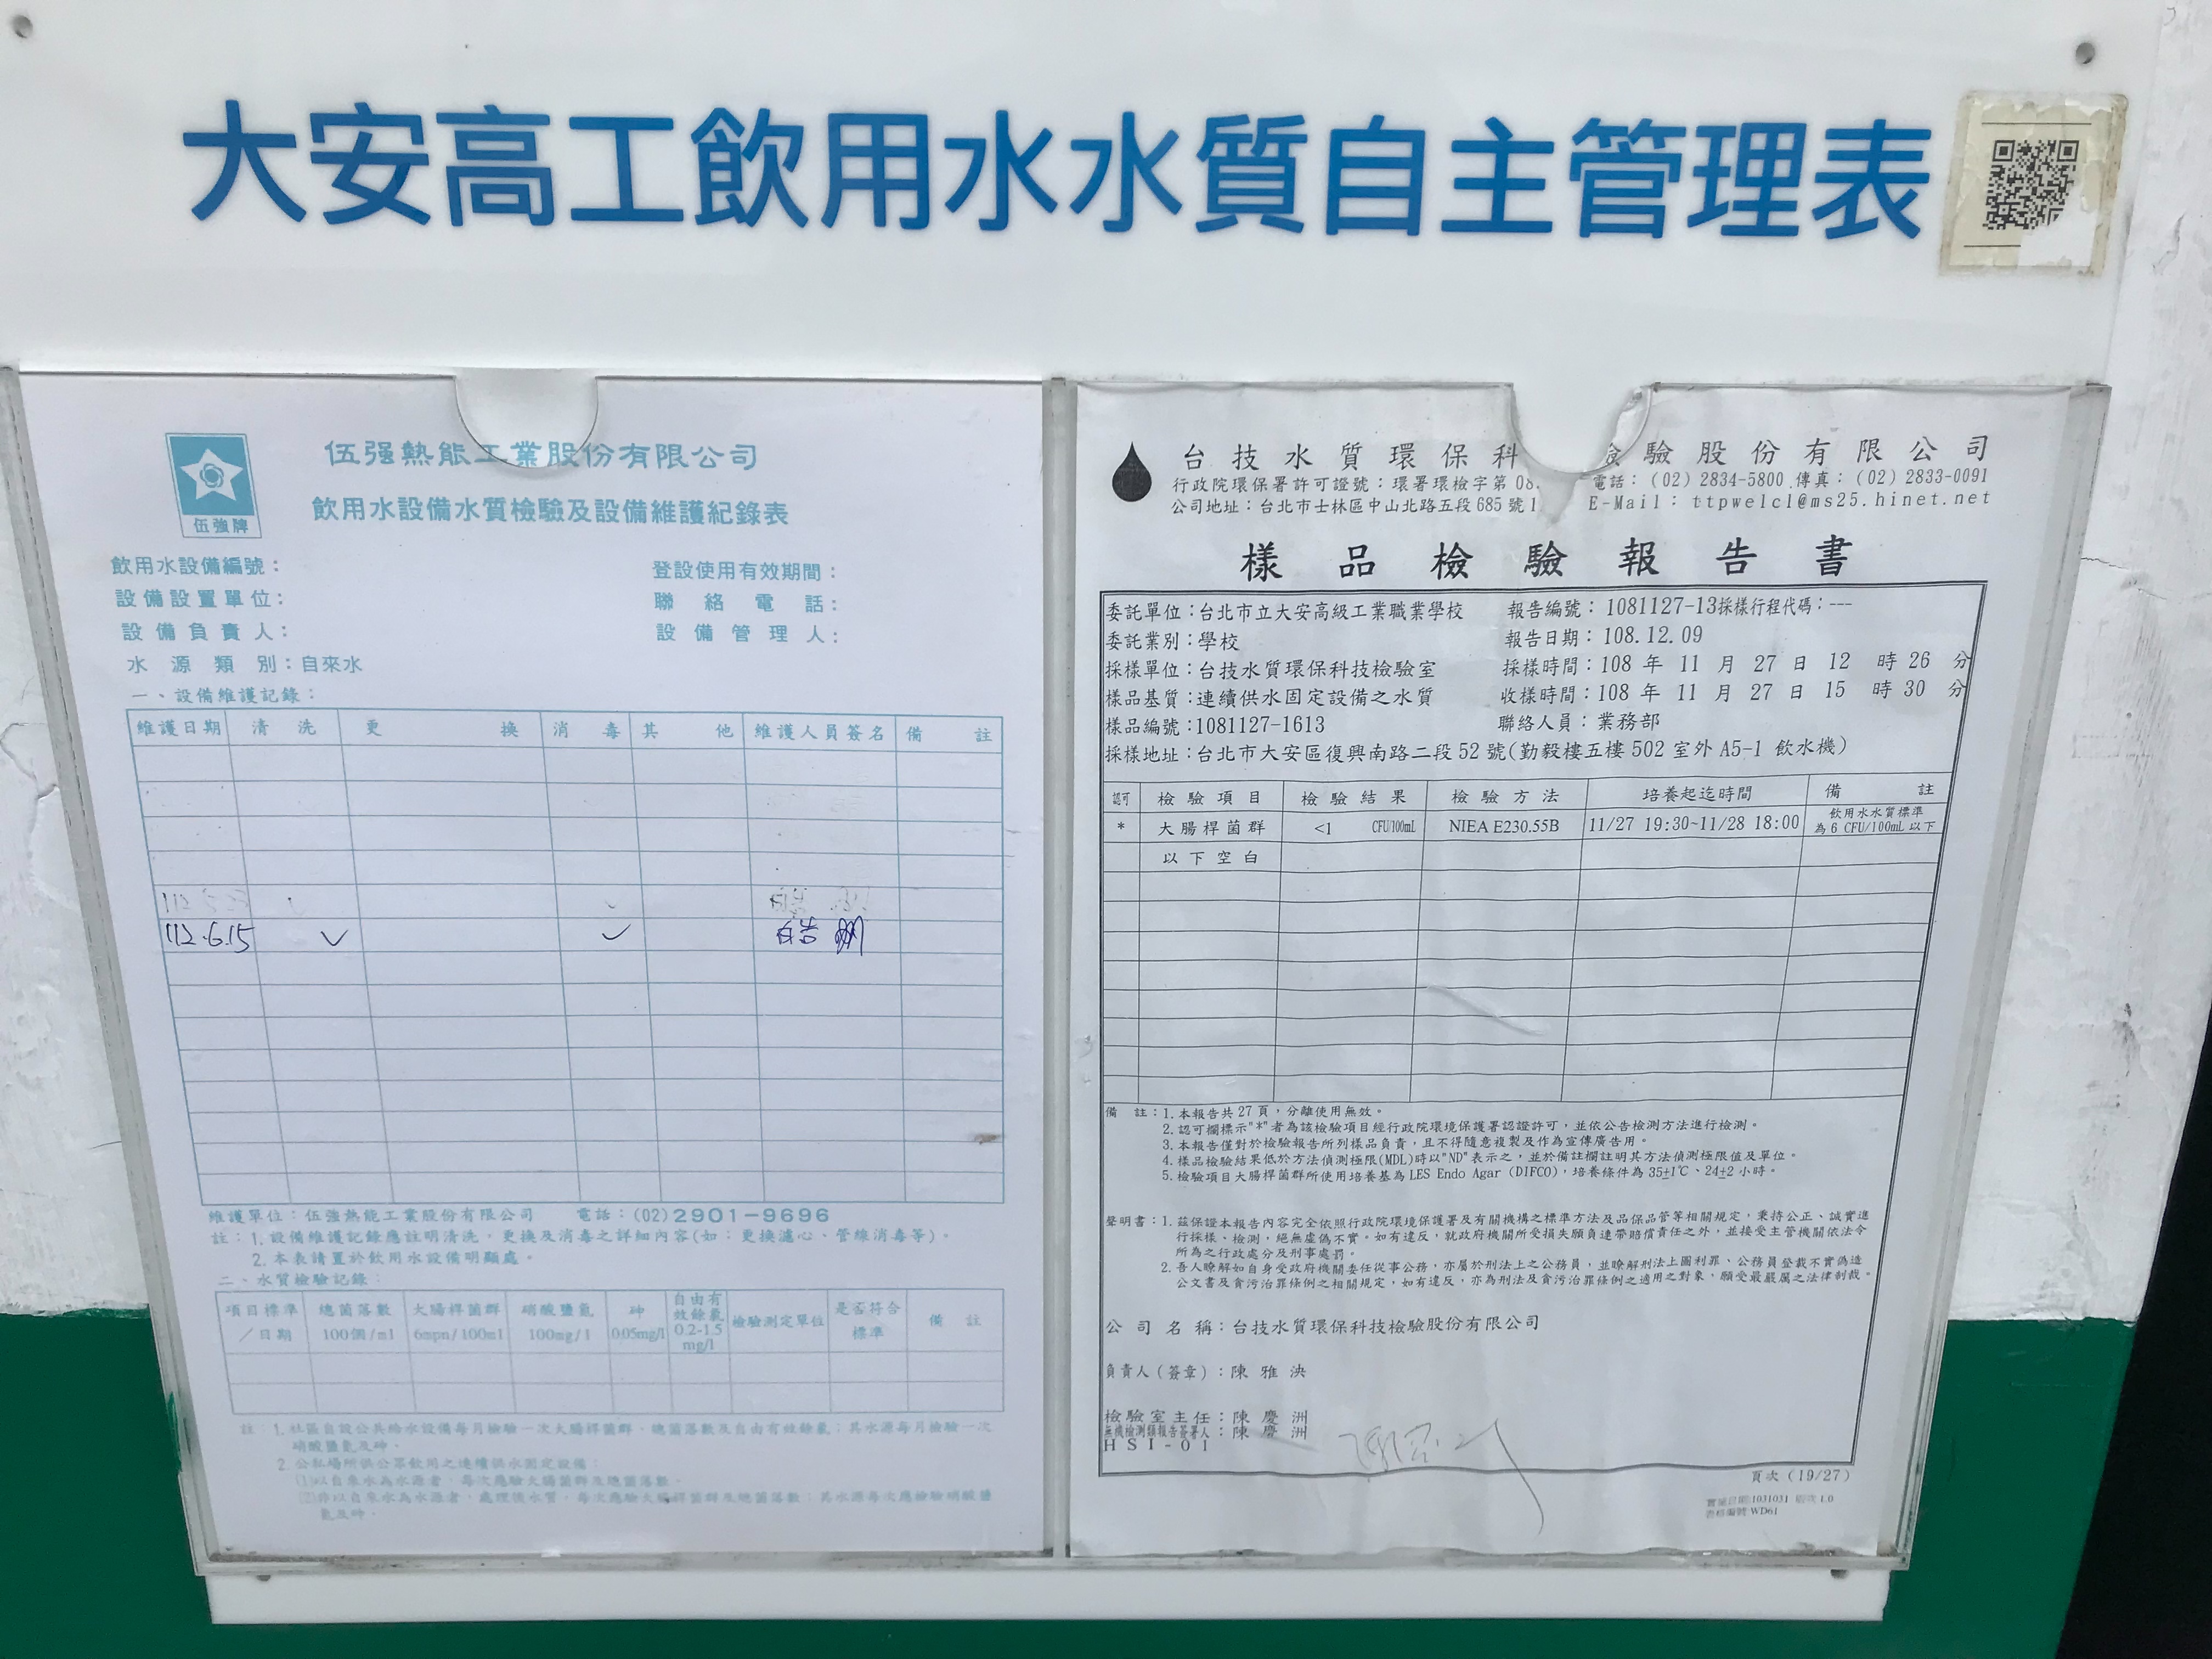 大安高工飲用水水質自主管理表
伍强熱能工業股份有限公司
伍強牌
飲用水設備水質檢驗及設備維護紀錄表
飲用水設備編號：
登設使用有效期間：
設備設置單位：
聯絡電話：
設備負責人：
設備管理人：
水源類別：自來水
一、設備維護記錄：
維護日期 清洗 更換 消毒 其他 維護人員簽名 備註
112.6.15 ✓ ✓
維護單位：伍強熱能工業股份有限公司 電話：(02)2901-9696
註：1. 設備維護記錄應註明清洗，更換及消毒之詳細內容(如：更換濾心、管線消毒等)。
2. 本表請置於飲用水設備明顯處。
二、水質檢驗記錄：
項目標準／日期 總菌落數 100個/ml 大腸桿菌群 6mpn/100ml 硝酸鹽氮 100mg/l 砷 0.05mg/l 自由有效餘氯 0.2-1.5 mg/l 檢驗測定單位 是否符合標準 備註
註：1. 社區自設公共給水設備每月檢驗一次大腸桿菌群、總菌落數及自由有效餘氯；其水源每月檢驗一次
硝酸鹽氮及砷。
2. 公私場所供公眾飲用之連續供水固定設備：
(1)以自來水為水源者，每次應驗大腸桿菌群及總菌落數。
(2)非以自來水為水源者，處理後水質，每次應驗大腸桿菌群及總菌落數；其水源每次應檢驗硝酸鹽
氮及砷。
台技水質環保科 驗股份有限公司
行政院環保署許可證號：環署環檢字第 電話：(02) 2834-5800 傳真：(02) 2833-0091
公司地址：台北市士林區中山北路五段685號1 E-Mail： ttpwelcl@ms25.hinet.net
樣品檢驗報告書
委託單位：台北市立大安高級工業職業學校 報告編號：1081127-13採樣行程代碼：---
委託業別：學校 報告日期：108.12.09
採樣單位：台技水質環保科技檢驗室 採樣時間：108 年 11 月 27 日 12 時 26 分
樣品基質：連續供水固定設備之水質 收樣時間：108 年 11 月 27 日 15 時 30 分
樣品編號：1081127-1613 聯絡人員：業務部
採樣地址：台北市大安區復興南路二段52號(勤毅樓五樓502室外A5-1 飲水機)
認可 檢驗項目 檢驗結果 檢驗方法 培養起迄時間 備註
* 大腸桿菌群 <1 CFU/100mL NIEA E230.55B 11/27 19:30~11/28 18:00 飲用水水質標準為6 CFU/100mL以下
以下空白
備註：1. 本報告共27頁，分離使用無效。
2. 認可欄標示"*"者為該檢驗項目經行政院環境保護署認證許可，並依公告檢測方法進行檢測。
3. 本報告僅對於檢驗報告所列樣品負責，且不得隨意複製及作為宣傳廣告用。
4. 樣品檢驗結果低於方法偵測極限(MDL)時以"ND"表示之，並於備註欄註明其方法偵測極限值及單位。
5. 檢驗項目大腸桿菌群所使用培養基為LES Endo Agar (DIFCO)，培養條件為35±1℃、24±2小時。
聲明書：1. 茲保證本報告內容完全依照行政院環境保護署及有關機構之標準方法及品保品管等相關規定，秉持公正、誠實進
行採樣、檢測，絕無虛偽不實。如有違反，就政府機關所受損失願負連帶賠償責任之外，並接受主管機關依法令
所為之行政處分及刑事處罰。
2. 吾人瞭解如自身受政府機關委任從事公務，亦屬於刑法上之公務員，並瞭解刑法上圖利罪、公務員登載不實偽造
公文書及貪污治罪條例之相關規定，如有違反，亦為刑法及貪污治罪條例之適用之對象，願受最嚴厲之法律制裁。
公司名稱：台技水質環保科技檢驗股份有限公司
負責人(簽章)：陳雅泱
檢驗室主任：陳慶洲
無機檢測類報告簽署人：陳慶洲
HSI-01
頁次(19/27)
實施日期:1031031 版次1.0
表格編號:WD61